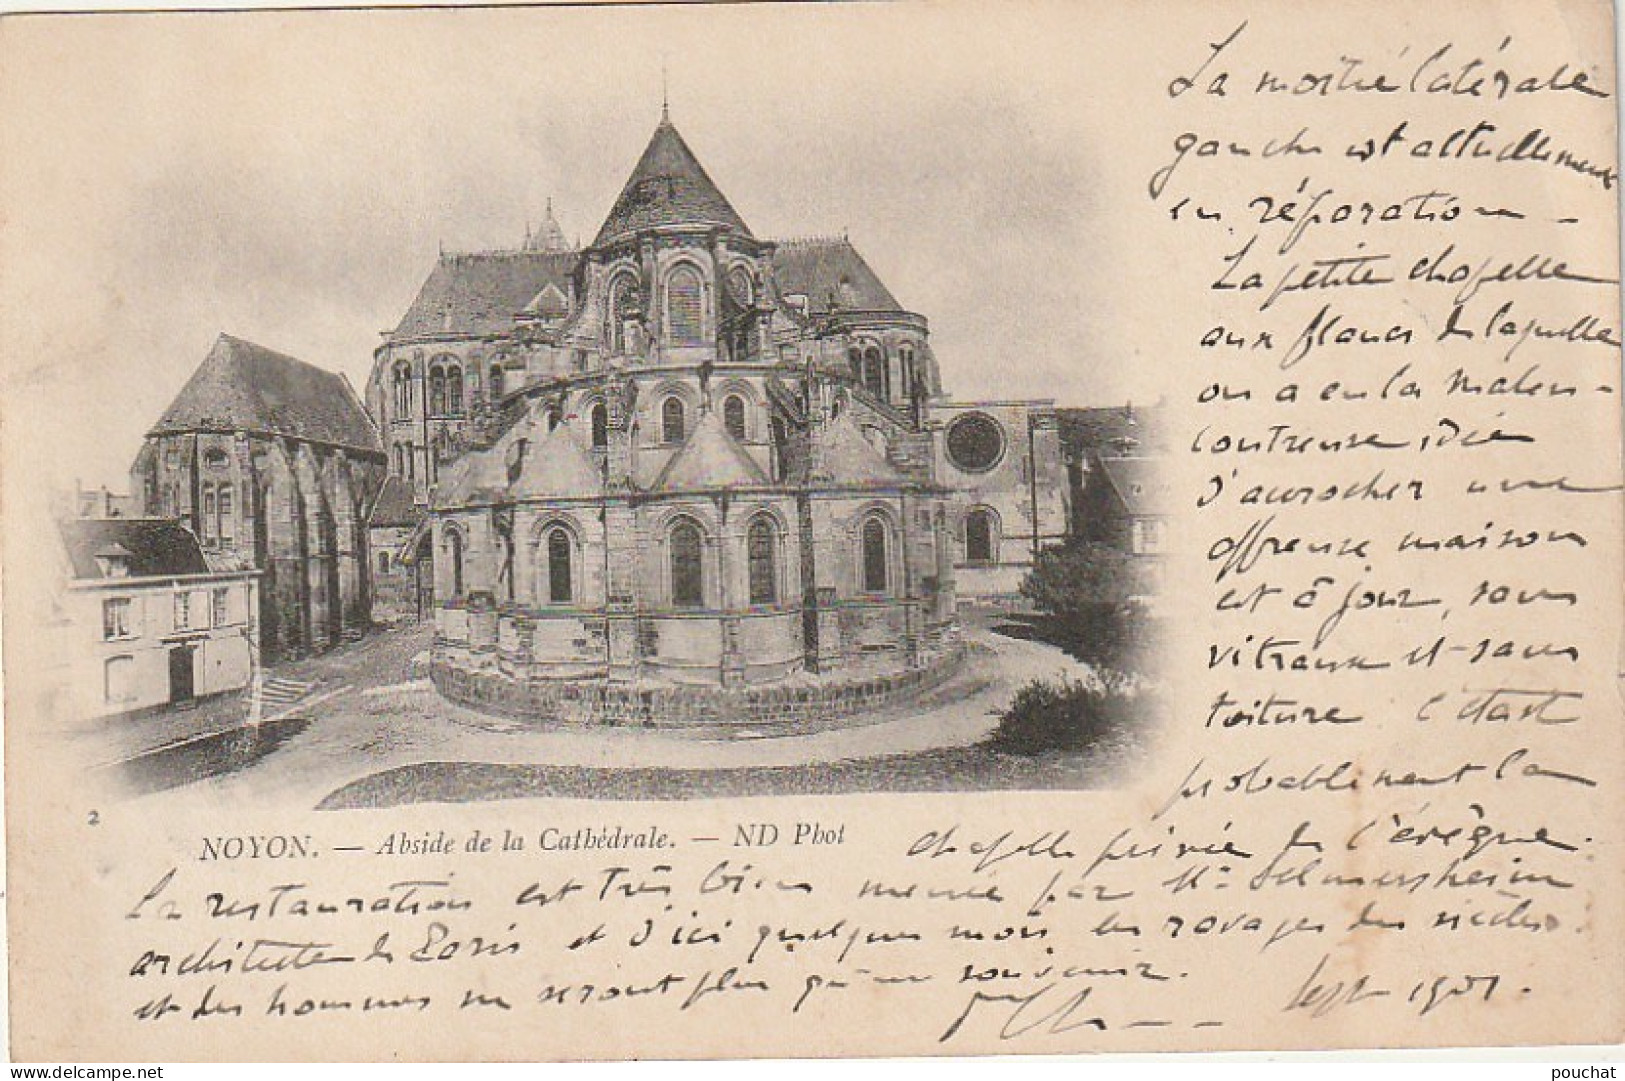 La moitié latérale
gauche est actuellement
en réparation -
La petite chapelle
aux flancs de laquelle
on a eu la malen-
contreuse idée
d'accrocher une
affreuse maison
est à jour, sans
vitraux et sans
toiture. C'était
probablement la
chapelle privée de l'évêque.
2
NOYON. — Abside de la Cathédrale. — ND Phot
La restauration est très bien menée par Mr Selmersheim
architecte de Paris et d'ici quelques mois les ravages des siècles
et des hommes ne seront plus qu'un souvenir.
Sept 1901.
pouchat